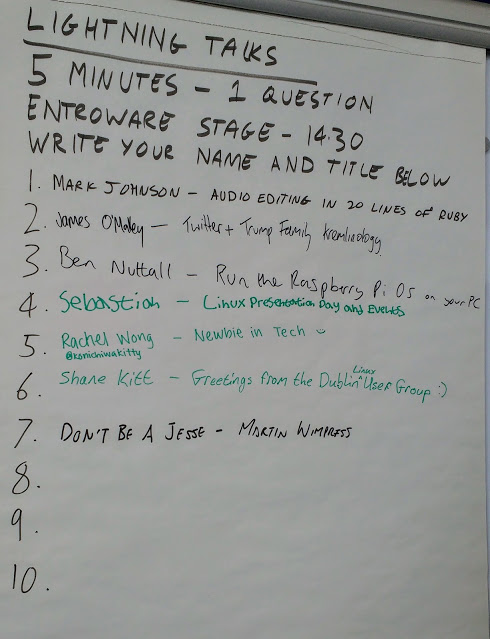 LIGHTNING TALKS
5 MINUTES - 1 QUESTION
ENTROWARE STAGE - 14.30
WRITE YOUR NAME AND TITLE BELOW
1. MARK JOHNSON - AUDIO EDITING IN 20 LINES OF RUBY
2. James O'Malley - Twitter + Trump Family Kremlinology
3. Ben Nuttall - Run the Raspberry Pi OS on your PC
4. Sebastian - Linux Presentation Day and Events
5. Rachel Wong - Newbie in Tech
@konichiwakitty
6. Shane Kitt - Greetings from the Dublin ^Linux User Group :)
7. DON'T BE A JESSE - MARTIN WIMPRESS
8.
9.
10.